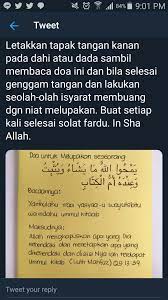 84% 9:01 PM
Tweet
Letakkan tapak tangan kanan
pada dahi atau dada sambil
membaca doa ini dan bila selesai
genggam tangan dan lakukan
seolah-olah isyarat membuang
dgn niat melupakan. Buat setiap
kali selesai solat fardu. In Sha
Allah.
Doa untuk Melupakan seseorang
يَمْحُوا اللهُ مَا يَشَاءُ وَيُثْبِتُ
وَعِنْدَهُ أُمُّ الْكِتَابِ
Bacaannya:
wa
ummul kitaab
Maksudnya:
Allah menghapuskan apa yang Dia
kehendaki dan menetapkan apa yang
dan disisi-Nya
13:39
Tweet your reply